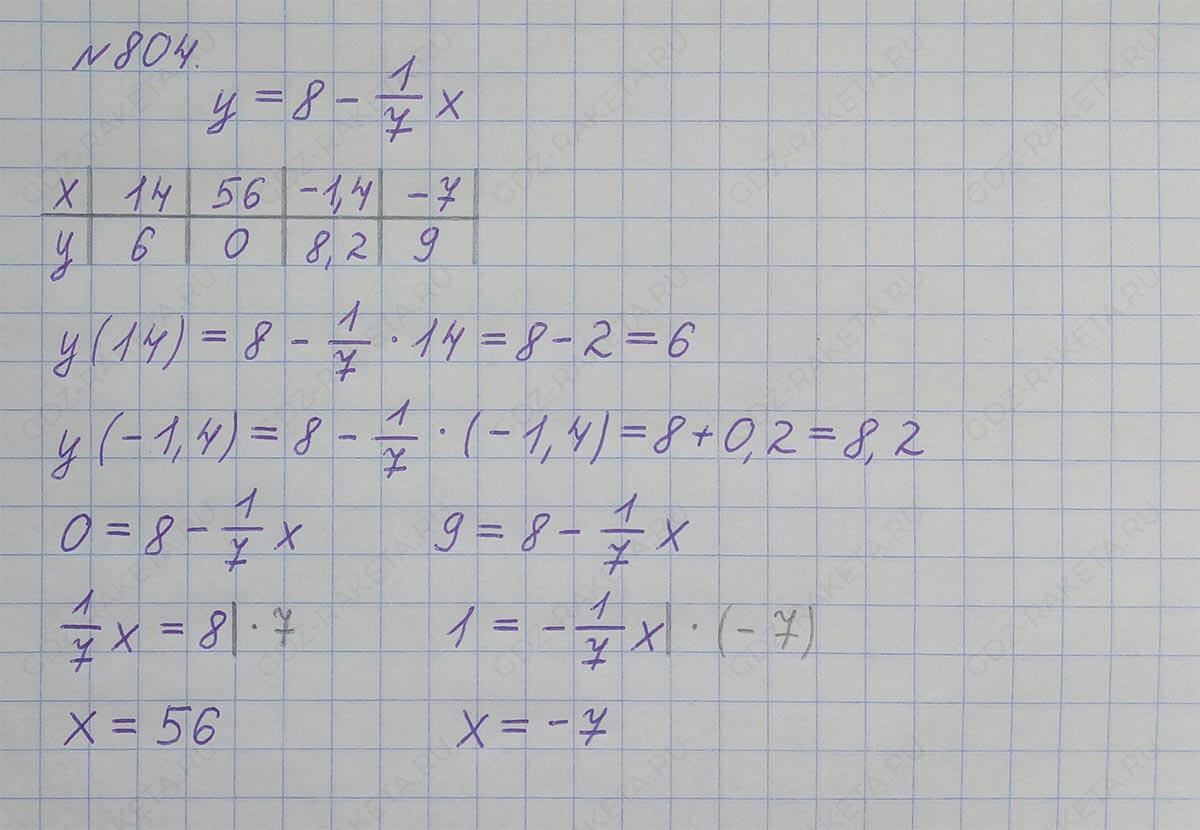 № 804.
y = 8 - 1/7 x
x | 14 | 56 | -1,4 | -7
y | 6 | 0 | 8,2 | 9
y(14) = 8 - 1/7 · 14 = 8 - 2 = 6
y(-1,4) = 8 - 1/7 · (-1,4) = 8 + 0,2 = 8,2
0 = 8 - 1/7 x    9 = 8 - 1/7 x
1/7 x = 8 | · 7    1 = - 1/7 x | · (-7)
x = 56    x = -7
GDZ-RAKETA.RU